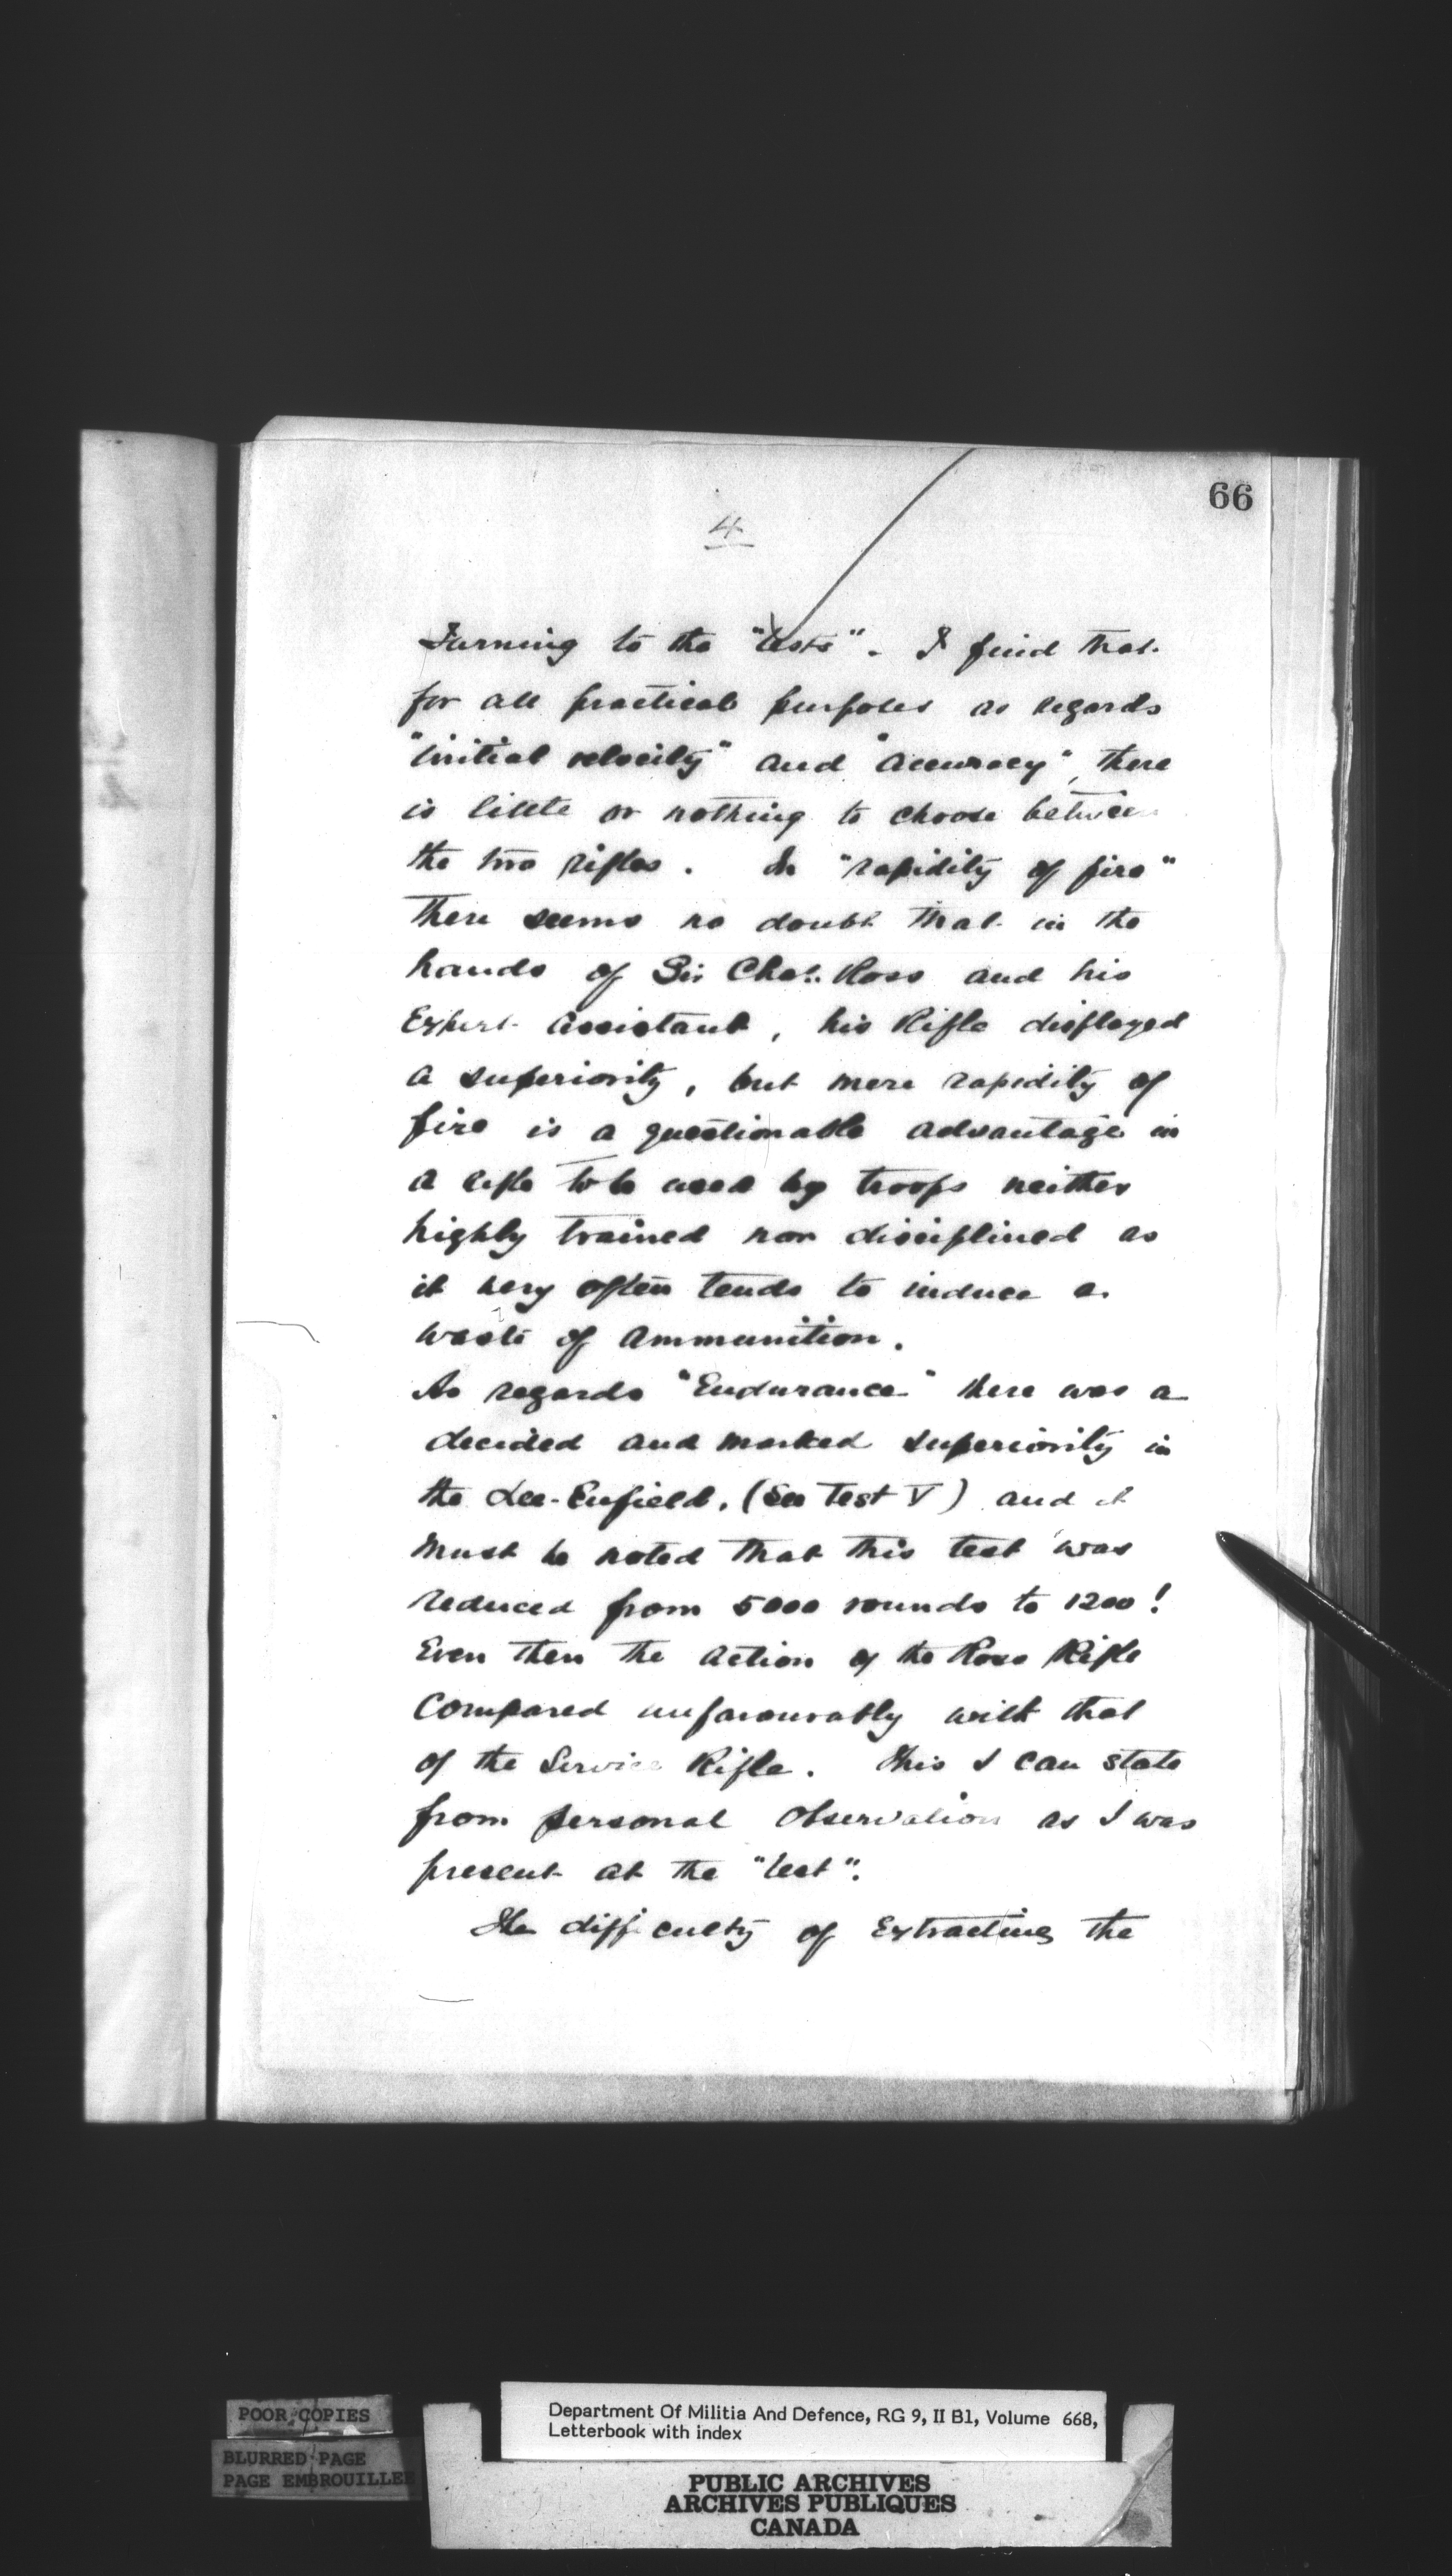 66
4
Turning to the "tests". I find that
for all practical purposes as regards
"initial velocity" and "accuracy", there
is little or nothing to choose between
the two rifles. In "rapidity of fire"
there seems no doubt that in the
hands of Sir Chas. Ross and his
Expert assistant, his Rifle displayed
a superiority, but mere rapidity of
fire is a questionable advantage in
a rifle to be used by troops neither
highly trained nor disciplined as
it very often tends to induce a
waste of ammunition.
As regards "Endurance" there was a
decided and marked superiority in
the Lee-Enfield. (See Test V) and it
must be noted that this test was
reduced from 5000 rounds to 1200!
Even then the action of the Ross Rifle
compared unfavourably with that
of the Service Rifle. This I can state
from personal observation as I was
present at the "test".
The difficulty of Extracting the
POOR COPIES
BLURRED PAGE
PAGE EMBROUILLEE
Department Of Militia And Defence, RG 9, II B1, Volume 668,
Letterbook with index
PUBLIC ARCHIVES
ARCHIVES PUBLIQUES
CANADA